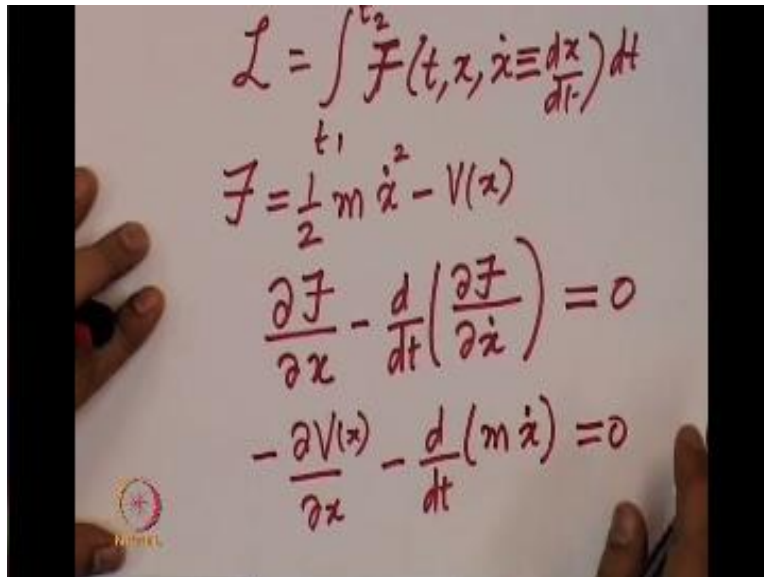 ℒ = ∫_{t₁}^{t₂} ℱ(t, x, ẋ ≡ dx/dt) dt
ℱ = 1/2 m ẋ² − V(x)
∂ℱ/∂x − d/dt (∂ℱ/∂ẋ) = 0
−∂V(x)/∂x − d/dt (m ẋ) = 0
NPTEL